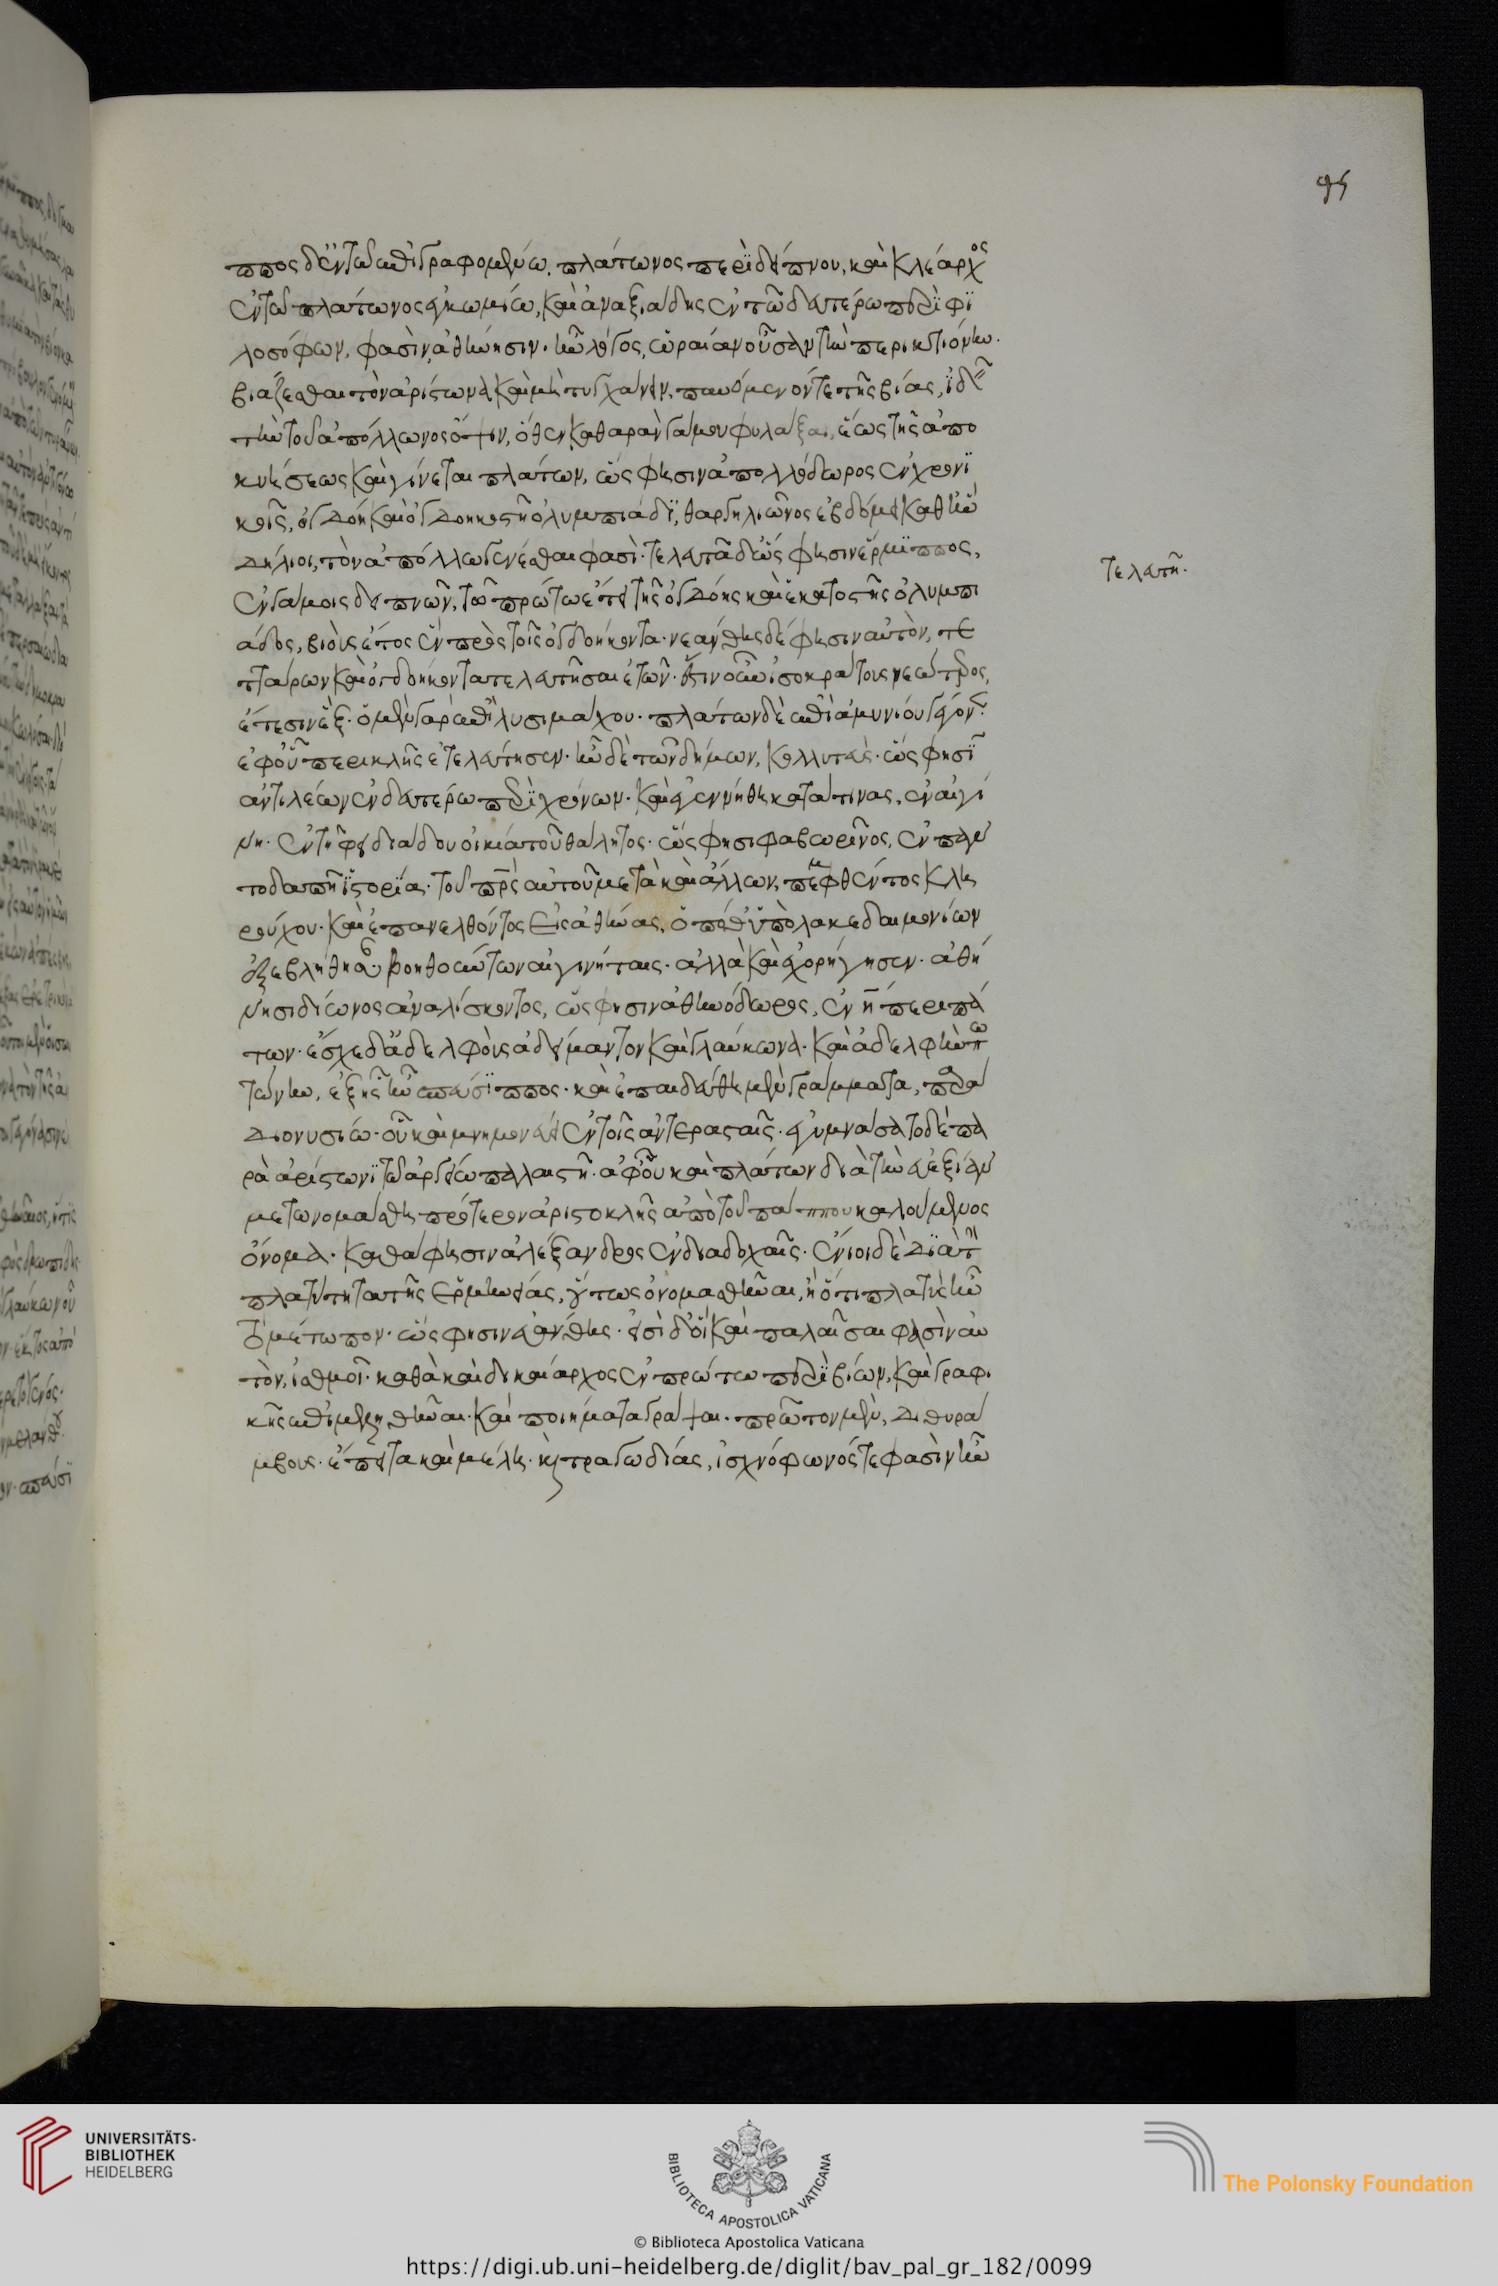 ππος δ' ἐν τῶ ἐπιγραφομένω. πλάτωνος περὶ δείπνου, καὶ κλέαρχος
ἐν τῶ πλάτωνος ἐγκωμίω, καὶ ἀναξιλίδης ἐν τῶ δευτέρω περὶ φι
λοσόφων, φασὶν, ἀθήνησιν. ἦν λόγος, ὡραίαν οὖσαν τὴν περικτιόνην.
βιάζεσθαι τὸν ἀρίστωνα καὶ μὴ τυγχάνειν, παυόμενόν τε τῆς βίας, ἰδεῖν
τὴν τοῦ ἀπόλλωνος ὄψιν, ὅθεν καθαρὰν γάμου φυλάξαι, ἕως τῆς ἀπο
κυήσεως καὶ γίνεται πλάτων, ὥς φησιν ἀπολλόδωρος ἐν χρονι
κοῖς, ὀγδόη καὶ ὀγδοηκοστῆ ὀλυμπιάδι, θαργηλιῶνος ἑβδόμη καθ' ἣν
δήλιοι, τὸν ἀπόλλω γενέσθαι φασὶ. τελευτᾶ δ' ὥς φησιν ἕρμιππος,
ἐν γάμοις δειπνῶν, τῶ πρώτω ἔτει τῆς ὀγδόης καὶ ἑκατοστῆς ὀλυμπι
άδος, βιοὺς ἔτος ἓν πρὸς τοῖς ὀγδοήκοντα. νεάνθης δέ φησιν αὐτὸν, τε
ττάρων καὶ ὀγδοήκοντα τελευτῆσαι ἐτῶν. ἔστιν οὖν ἰσοκράτους νεώτερος,
ἔτεσιν ἕξ. ὁ μὲν γὰρ ἐπὶ λυσιμάχου. πλάτων δὲ ἐπὶ ἀμυνίου γέγον.
ἐφ' οὗ περικλῆς ἐτελεύτησεν. ἦν δὲ τῶν δήμων, κολλυτεὺς. ὥς φησὶ
ἀντιλέων ἐν δευτέρω περὶ χρόνων. καὶ ἐγεννήθη κατά τινας, ἐν αἰγί
νη. ἐν τῆ φειδιάδου οἰκία τοῦ θάλητος. ὥς φησι φαβωρῖνος, ἐν παν
τοδαπῆ ἱστορία. τοῦ πρς αὐτοῦ μετὰ καὶ ἄλλων, πεμφθέντος κλη
ρούχου. καὶ ἐπανελθόντος εἰς ἀθήνας, ὁπόθ' ὑπὸ λακεδαιμονίων
ἐξεβλήθησαν βοηθούντων αἰγινήταις. ἀλλὰ καὶ ἐχορήγησεν. ἀθή
νησι δίωνος ἀναλίσκοντος, ὥς φησιν ἀθηνόδωρος, ἐν ῆ περιπά
των. ἔσχε δ' ἀδελφοὺς ἀδείμαντον καὶ γλαύκωνα. καὶ ἀδελφὴν πω
τώνην, ἐξ ἧς ἦν σπεύσιππος. καὶ ἐπαιδεύθη μὲν γράμματα, παρὰ
διονυσίω. οὗ καὶ μνημονεύει ἐν τοῖς ἀντερασταῖς. ἐγυμνάσατο δὲ πα
ρὰ ἀρίστωνι τῶ ἀργείω παλαιστῆ. ἀφ' οὗ καὶ πλάτων διὰ τὴν εὐεξίαν
μετωνομάσθη πρότερον ἀριστοκλῆς ἀπὸ τοῦ πάππου καλούμενος
ὄνομα. καθά φησιν ἀλέξανδρος ἐν διαδοχαῖς. ἔνιοι δὲ διὰ τὴν
πλατύτητα τῆς ἑρμηνείας, οὕτως ὀνομασθῆναι, ἢ ὅτι πλατὺς ἦν
τὸ μέτωπον. ὥς φησιν νεάνθης. εἰσὶ δ' οἳ καὶ παλαῖσαι φασὶν αὐ
τὸν, ἰσθμοῖ. καθὰ καὶ δικαίαρχος ἐν πρώτω περὶ βίων, καὶ γραφι
κῆς ἐπιμεληθῆναι. καὶ ποιήματα γράψαι. πρῶτον μὲν, διθυρά
μβους. ἔπειτα καὶ μέλη. κ τραγωδίας, ἰσχνόφωνός τε φασὶν ἦν
τελευτῆ.
UNIVERSITÄTS-
BIBLIOTHEK
HEIDELBERG
BIBLIOTECA APOSTOLICA VATICANA
The Polonsky Foundation
© Biblioteca Apostolica Vaticana
https://digi.ub.uni-heidelberg.de/diglit/bav_pal_gr_182/0099